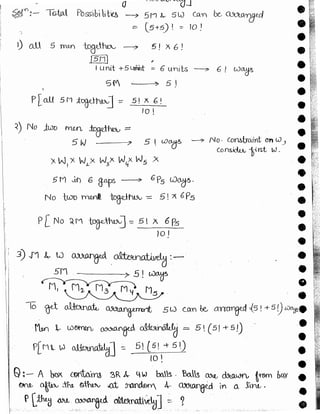 Solⁿ :- Total Possibilities → 5M & 5W can be arranged
= (5+5)! = 10!
1) all 5 men together → 5! × 6!
[5M]
1 unit + 5 unit = 6 units → 6! ways
5M → 5!
P[all 5M together] = 5! × 6! / 10!
2) No two men together =
5W → 5! ways → No. Constraint on W,
Consider first W.
× W₁ × W₂ × W₃ × W₄ × W₅ ×
5M in 6 gaps → ⁶P₅ ways.
No two men together = 5! × ⁶P₅
P[No 2M together] = 5! × ⁶P₅ / 10!
3) M & W arranged alternatively :-
5M → 5! ways
M₁ M₂ M₃ M₄ M₅
To get alternate arrangement 5W can be arranged (5! + 5!) ways
Men & Women arranged alternately = 5! (5! + 5!)
P[M & W alternately] = 5! (5! + 5!) / 10!
Q :- A box contains 3R & 4W balls. Balls are drawn from box
one after the other at random, & arranged in a line.
P[they are arranged alternatively] = ?